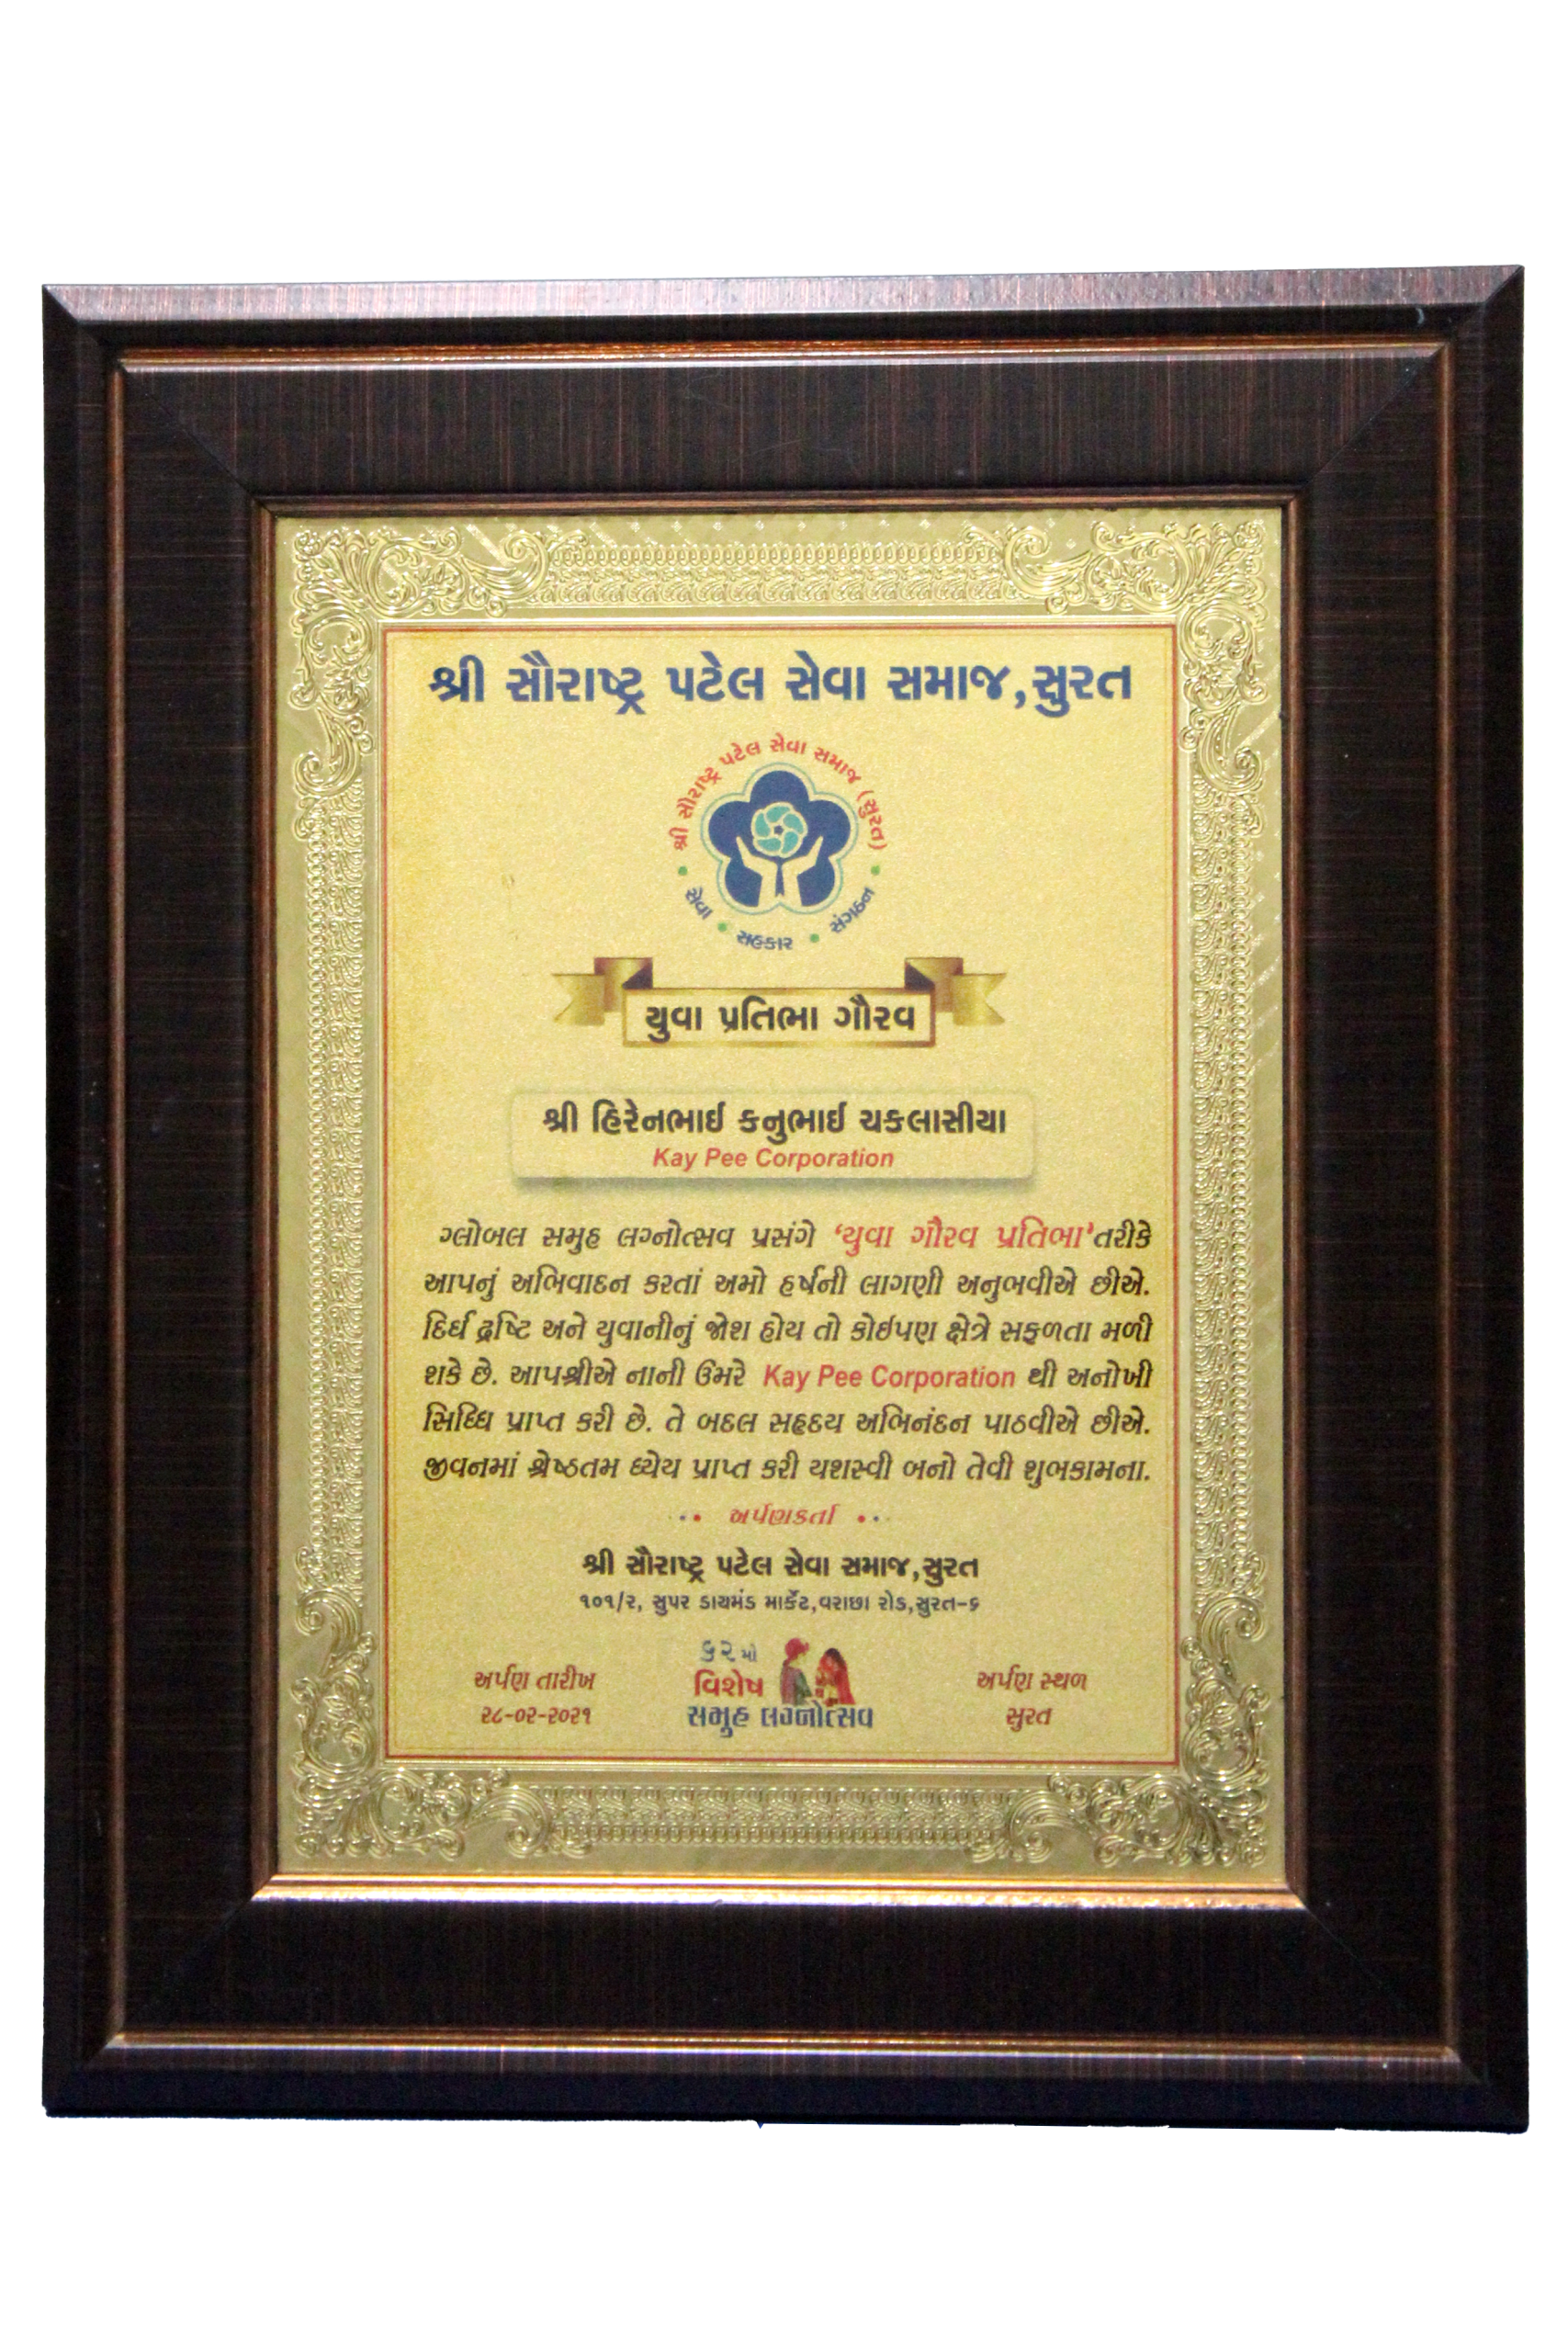 શ્રી સૌરાષ્ટ્ર પટેલ સેવા સમાજ,સુરત
શ્રી સૌરાષ્ટ્ર પટેલ સેવા સમાજ (સુરત)
સેવા • સહકાર • સંગઠન
યુવા પ્રતિભા ગૌરવ
શ્રી હિરેનભાઈ કનુભાઈ ચકલાસીયા
Kay Pee Corporation
ગ્લોબલ સમુહ લગ્નોત્સવ પ્રસંગે ‘યુવા ગૌરવ પ્રતિભા’તરીકે
આપનું અભિવાદન કરતાં અમો હર્ષની લાગણી અનુભવીએ છીએ.
દિર્ઘ દ્રષ્ટિ અને યુવાનીનું જોશ હોય તો કોઈપણ ક્ષેત્રે સફળતા મળી
શકે છે. આપશ્રીએ નાની ઉંમરે Kay Pee Corporation થી અનોખી
સિધ્ધિ પ્રાપ્ત કરી છે. તે બદલ સહૃદય અભિનંદન પાઠવીએ છીએ.
જીવનમાં શ્રેષ્ઠતમ ધ્યેય પ્રાપ્ત કરી યશસ્વી બનો તેવી શુભકામના.
•• અર્પણકર્તા ••
શ્રી સૌરાષ્ટ્ર પટેલ સેવા સમાજ,સુરત
૧૦૧/૨, સુપર ડાયમંડ માર્કેટ,વરાછા રોડ,સુરત-૬
અર્પણ તારીખ
૨૮-૦૨-૨૦૨૧
૬૨ મો
વિશેષ
સમુહ લગ્નોત્સવ
અર્પણ સ્થળ
સુરત